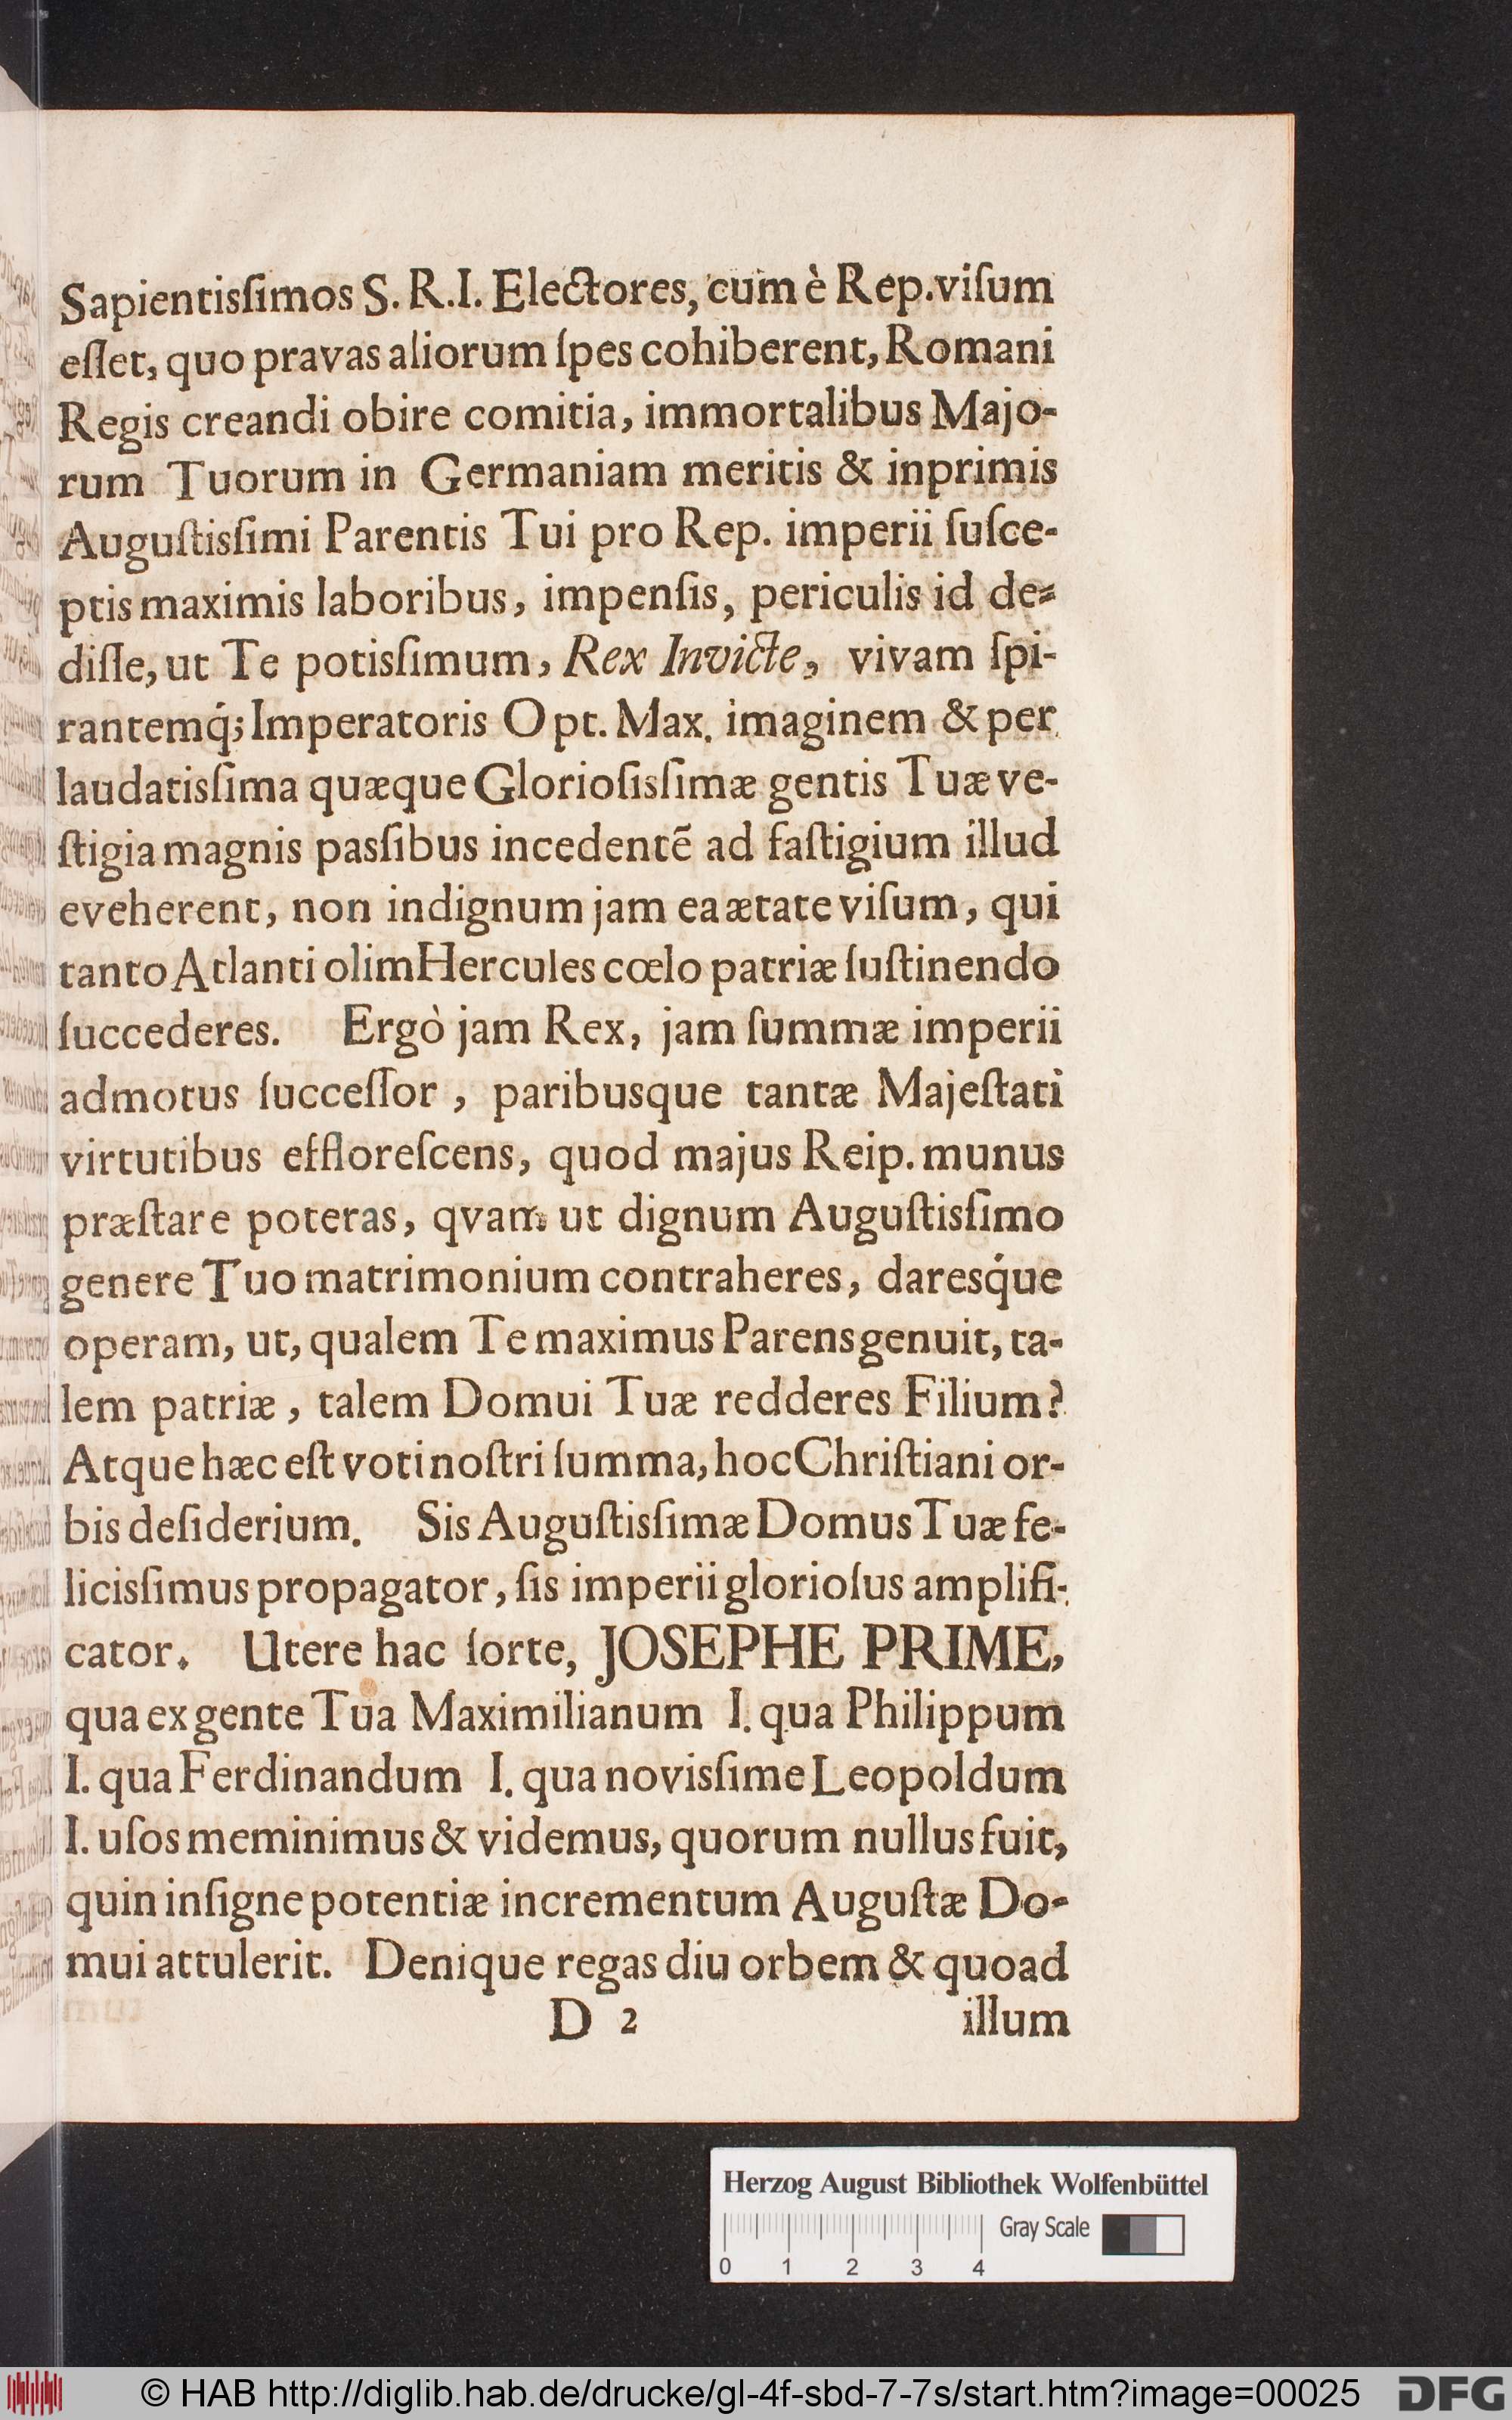 Sapientisſimos S. R. I. Electores, cum è Rep. viſum
eſſet, quo pravas aliorum ſpes cohiberent, Romani
Regis creandi obire comitia, immortalibus Majo-
rum Tuorum in Germaniam meritis & inprimis
Auguſtisſimi Parentis Tui pro Rep. imperii ſuſce-
ptis maximis laboribus, impenſis, periculis id de-
diſſe, ut Te potisſimum, Rex Invicte, vivam ſpi-
rantemq́; Imperatoris Opt. Max. imaginem & per
laudatisſima quæque Glorioſisſimæ gentis Tuæ ve-
ſtigia magnis pasſibus incedentẽ ad faſtigium illud
eveherent, non indignum jam ea ætate viſum, qui
tanto Atlanti olim Hercules cœlo patriæ ſuſtinendo
ſuccederes. Ergò jam Rex, jam ſummæ imperii
admotus ſucceſſor, paribusque tantæ Majeſtati
virtutibus effloreſcens, quod majus Reip. munus
præſtare poteras, qvam ut dignum Auguſtisſimo
genere Tuo matrimonium contraheres, daresq́ue
operam, ut, qualem Te maximus Parens genuit, ta-
lem patriæ, talem Domui Tuæ redderes Filium?
Atque hæc eſt voti noſtri ſumma, hoc Chriſtiani or-
bis deſiderium. Sis Auguſtisſimæ Domus Tuæ fe-
licisſimus propagator, ſis imperii glorioſus amplifi-
cator. Utere hac ſorte, JOSEPHE PRIME,
qua ex gente Tua Maximilianum I. qua Philippum
I. qua Ferdinandum I. qua novisſime Leopoldum
I. uſos meminimus & videmus, quorum nullus fuit,
quin inſigne potentiæ incrementum Auguſtæ Do-
mui attulerit. Denique regas diu orbem & quoad
D 2 illum
Herzog August Bibliothek Wolfenbüttel
Gray Scale
0 1 2 3 4
© HAB http://diglib.hab.de/drucke/gl-4f-sbd-7-7s/start.htm?image=00025 DFG